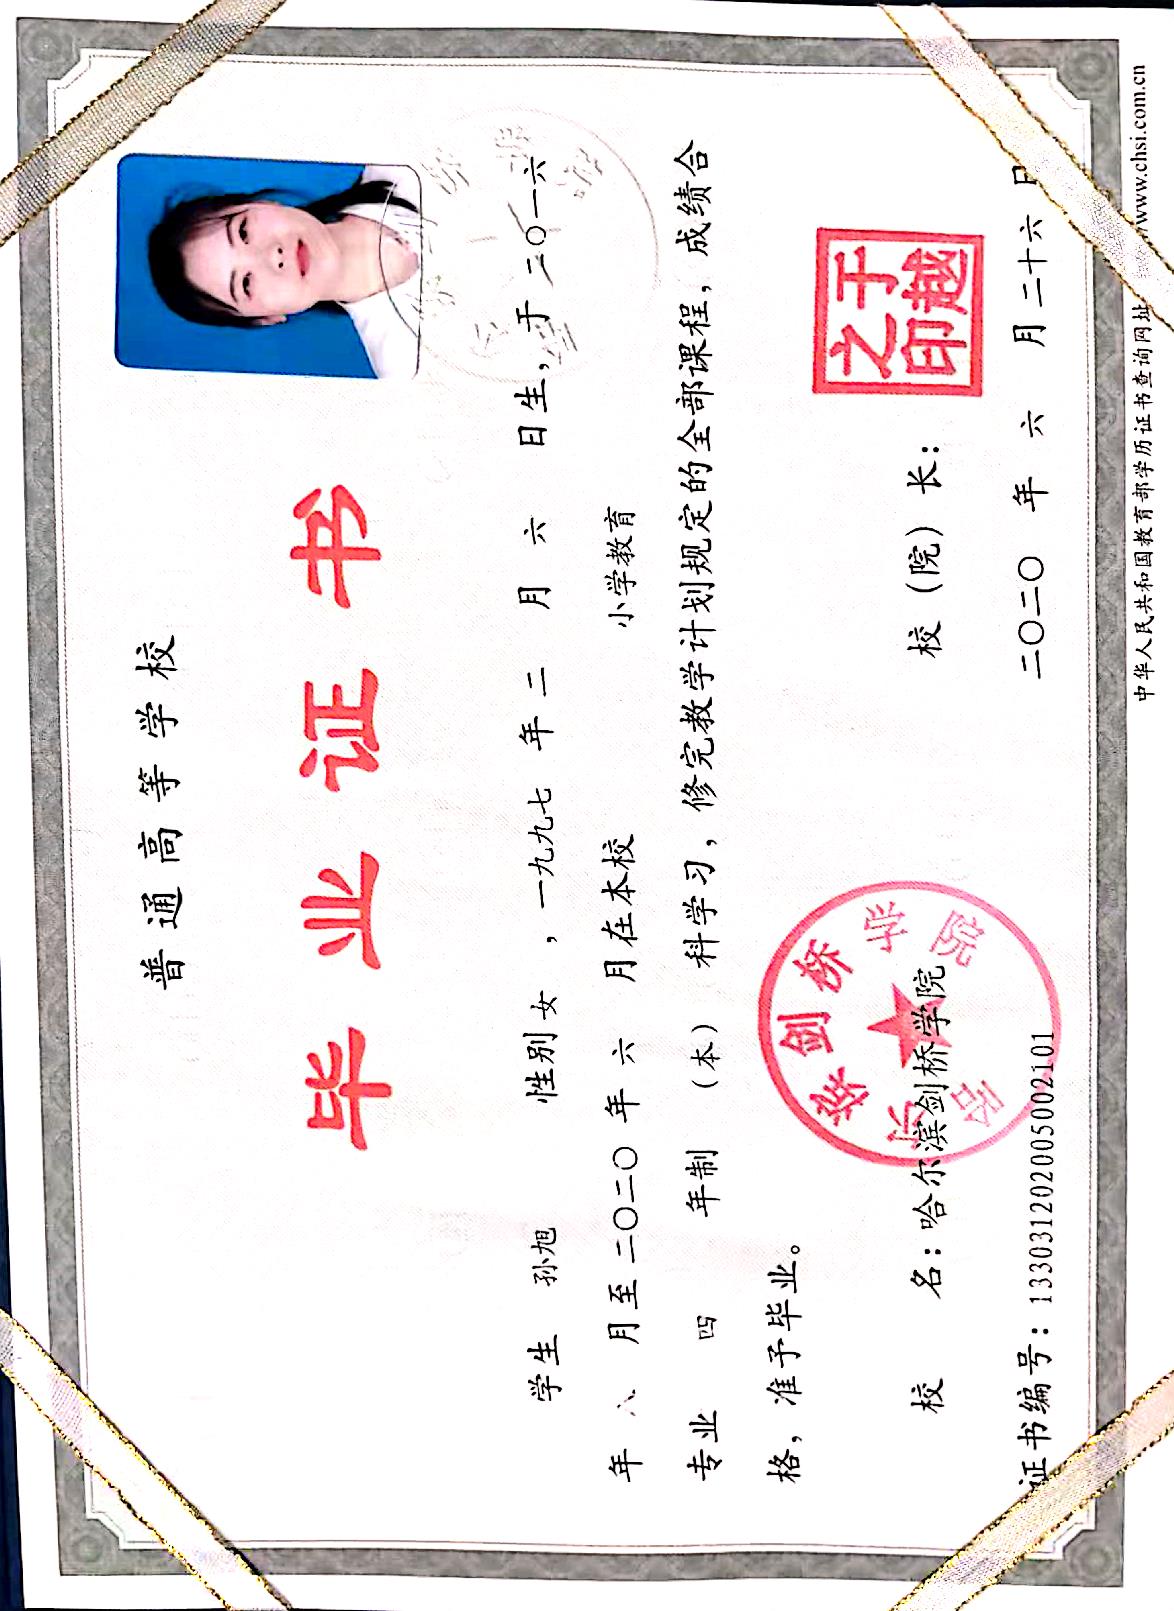 普通高等学校
毕业证书
学生 孙旭 性别女，一九九七年二月六日生，于二〇一六
年八月至二〇二〇年六月在本校 小学教育
专业 四 年制（本）科学习，修完教学计划规定的全部课程，成绩合
格，准予毕业。
校 名：哈尔滨剑桥学院 校（院）长：
哈尔滨剑桥学院
于越之印
证书编号：133031202005002101 二〇二〇年六月二十六日
中华人民共和国教育部学历证书查询网址 www.chsi.com.cn